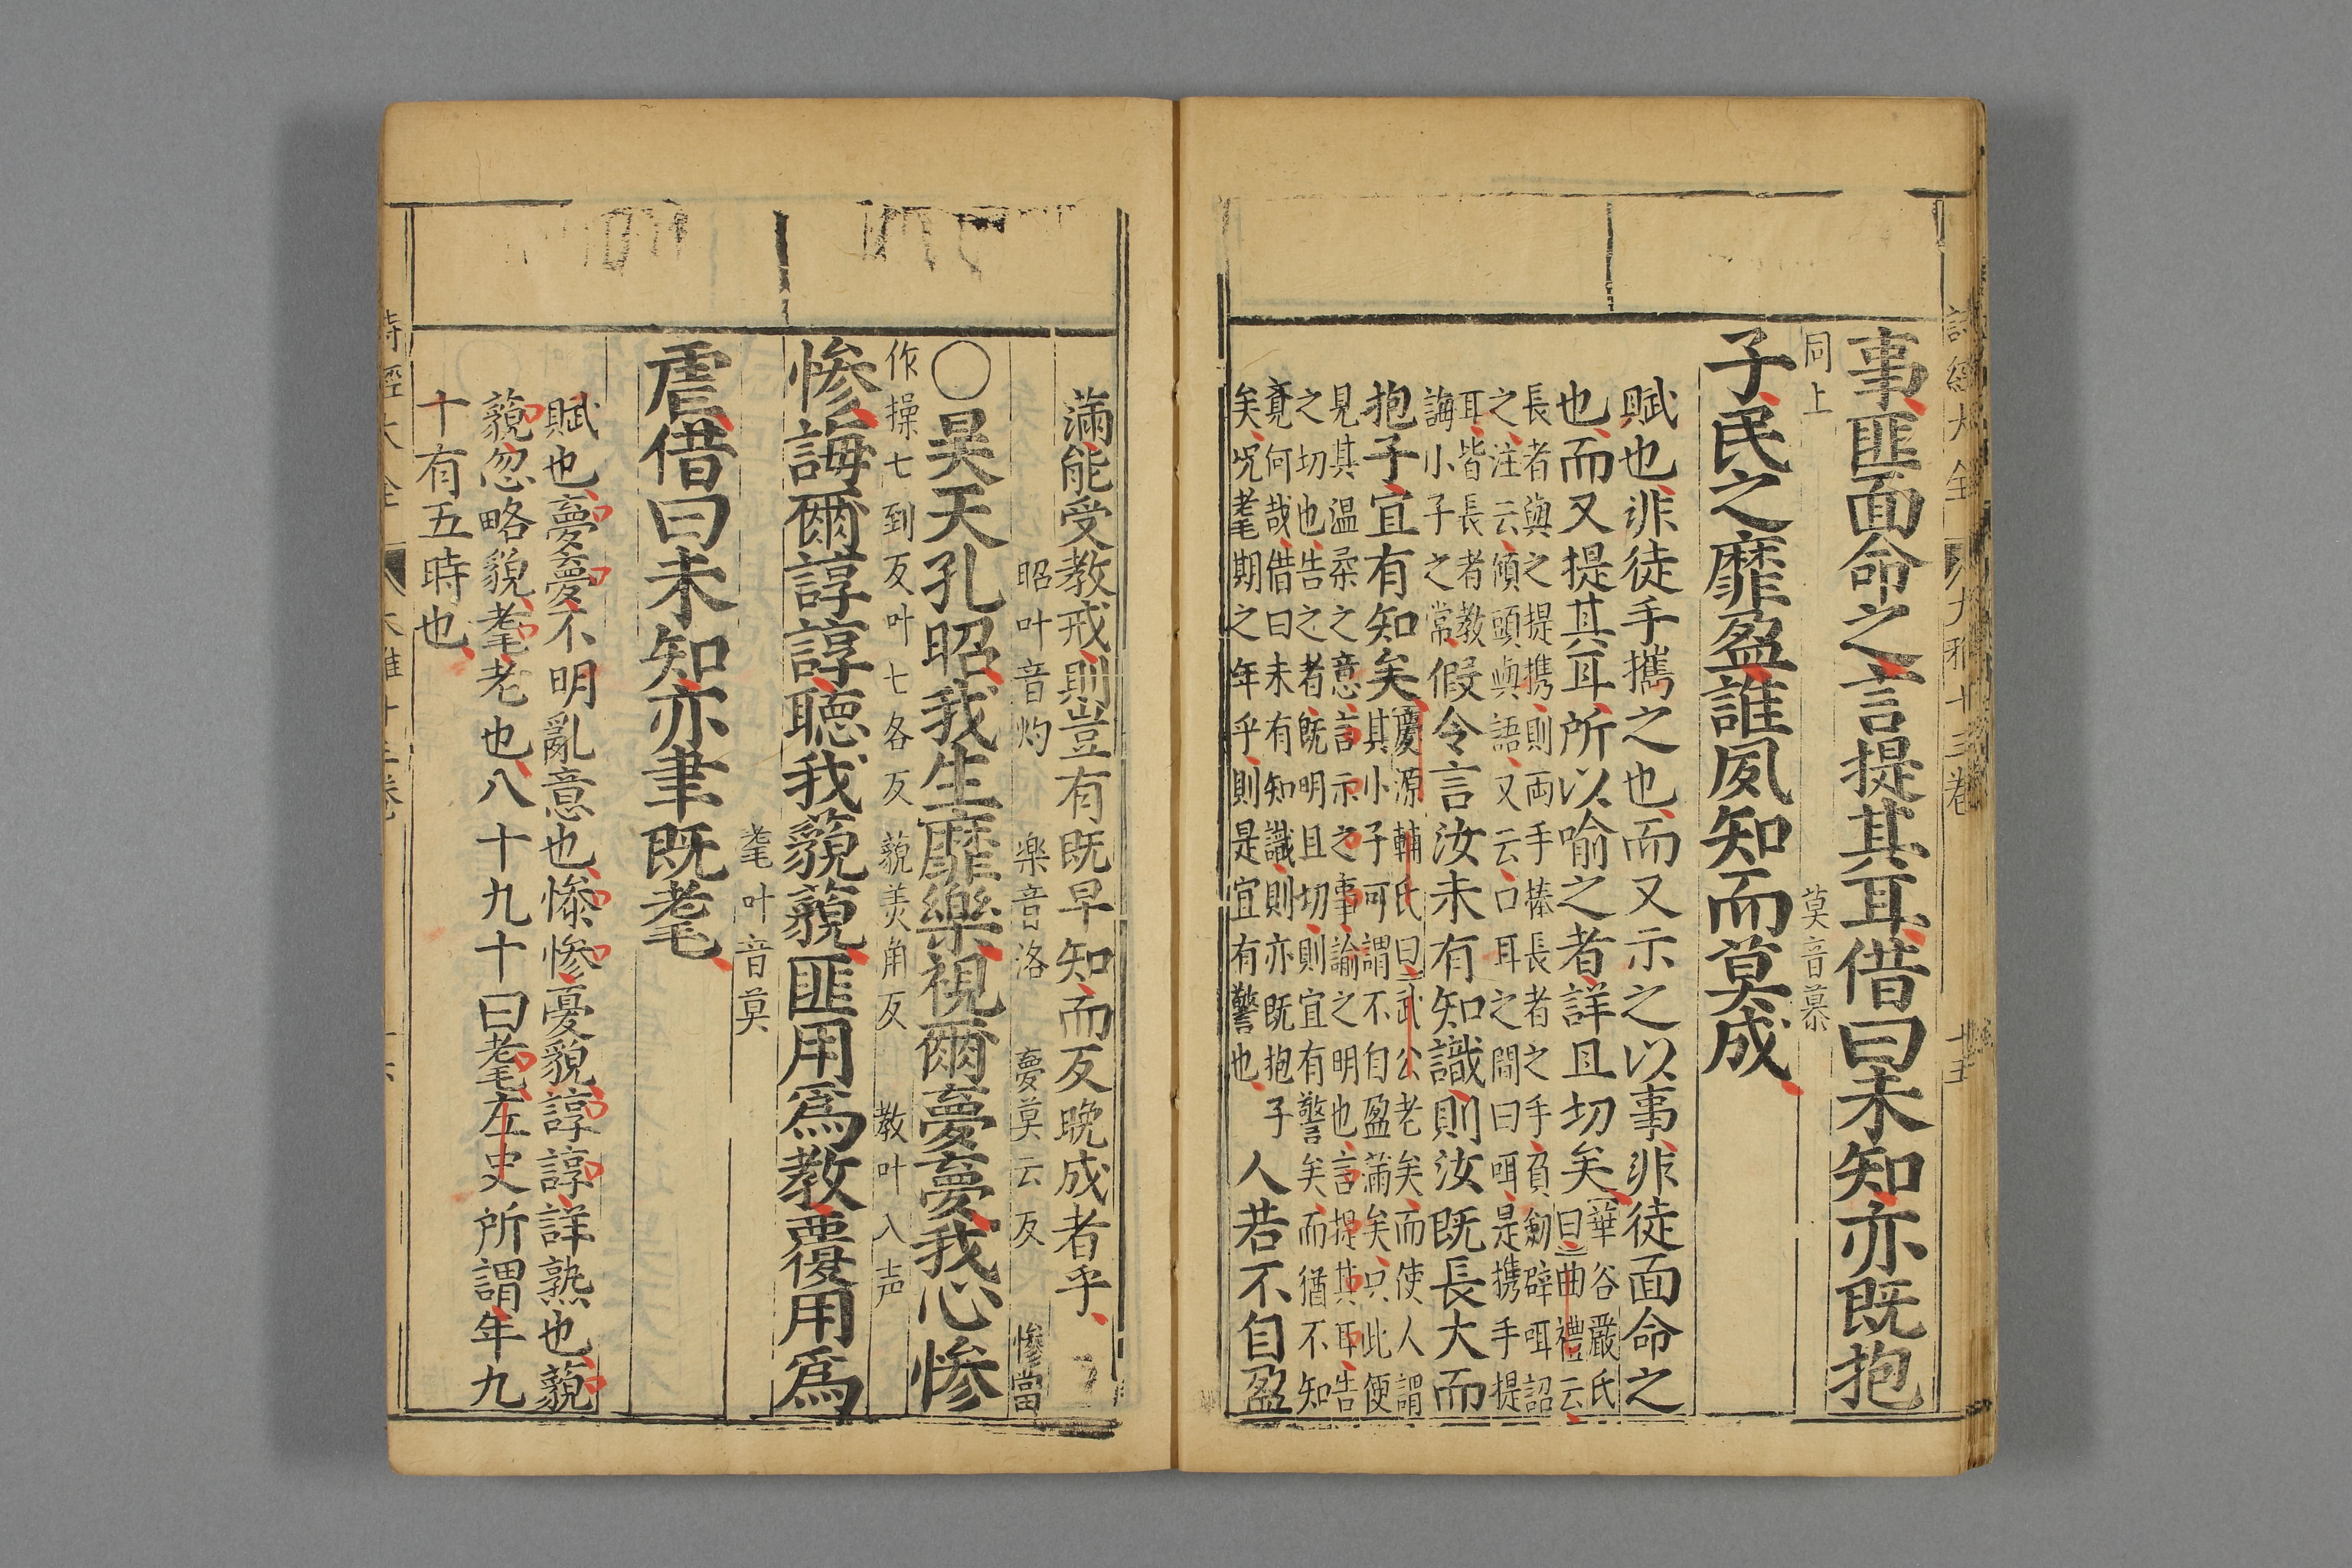 事匪面命之言提其耳借曰未知亦既抱
同上 莫音慕
子民之靡盈誰夙知而莫成
賦也非徒手攜之也而又示之以事非徒面命之
也而又提其耳所以喻之者詳且切矣
華谷嚴氏
曰曲禮云
長者與之提携則両手捧長者之手負劔辟咡詔
之注云傾頭與語又云口耳之間曰咡是携手提
耳皆長者教
誨小子之常
假令言汝未有知識則汝既長大而
抱子宜有知矣
慶源輔氏曰武公老矣而使人謂
其小子可謂不自盈滿矣只此便
見其温柔之意言示之事諭之明也言提其耳告
之切也告之者既明且切則宜有警矣而猶不知
竟何哉借曰未有知識則亦既抱子
矣况耄期之年乎則是宜有警也
人若不自盈
滿能受教戒則豈有既早知而反晚成者乎
昭叶音灼 樂音洛 夢莫云反 慘當
○昊天孔昭我生靡樂視爾夢夢我心慘
作操七到反叶七各反 藐美角反 教叶入声
慘誨爾諄諄聽我藐藐匪用爲教覆用爲
耄叶音莫
虐借曰未知亦聿既耄
賦也夢夢不明亂意也慘慘憂貌諄諄詳熟也藐
藐忽略貌耄老也八十九十曰耄左史所謂年九
十有五時也